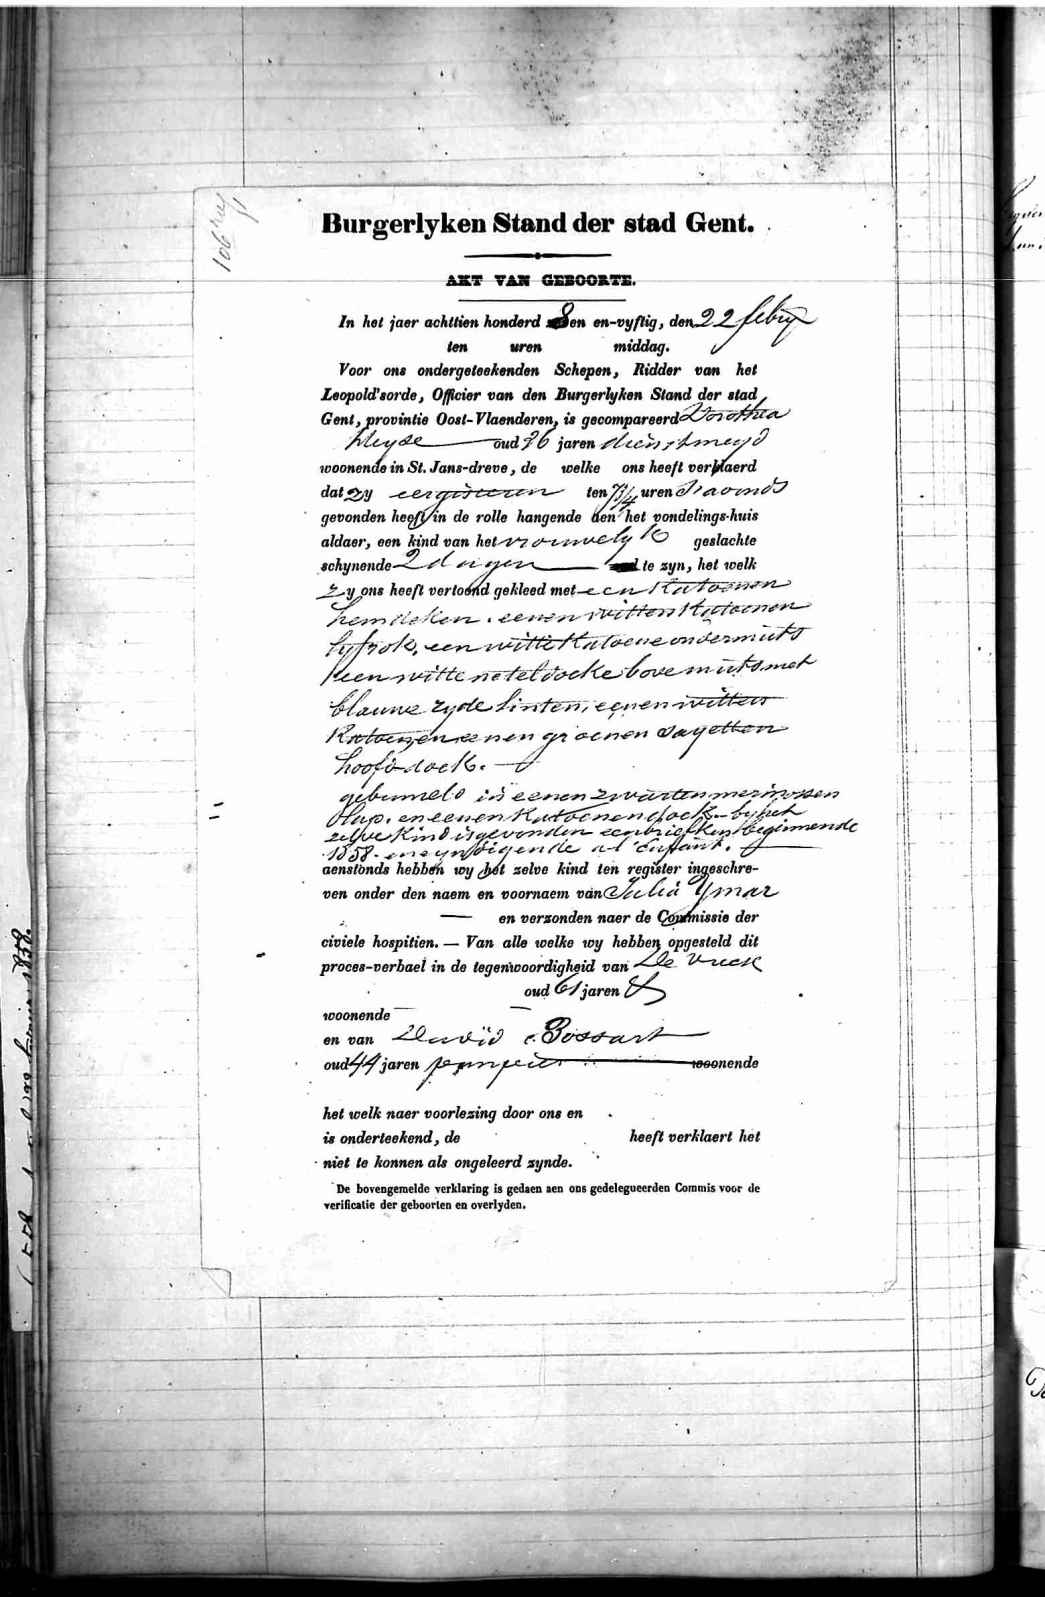 Burgerlyken Stand der stad Gent.
AKT VAN GEBOORTE.
In het jaer achttien honderd 8 en en-vyftig, den 22 febry
ten uren middag.
Voor ons ondergeteekenden Schepen, Ridder van het
Leopold'sorde, Officier van den Burgerlyken Stand der stad
Gent, provintie Oost-Vlaenderen, is gecompareerd Dorothea
oud 36 jaren dienstmeyd
woonende in St. Jans-dreve, de welke ons heeft verklaerd
dat zy eergisteren ten 7 3/4 uren s'avonds
gevonden heeft in de rolle hangende aen het vondelings-huis
aldaer, een kind van het vrouwelyk geslachte
schynende 2 dagen te zyn, het welk
zy ons heeft vertoond gekleed met een Katoenen
hemdeken, eenen witten Katoenen
lyfrok, een witte Katoene ondermuts
een witte neteldoeke bovemuts met
blauwe zyde linten, eenen witten
Katoenen eenen groenen Sayetten
hoofddoek.
gebunseld in eenen zwarten merinossen
slap, en eenen Katoenen doek - by het
zelve Kind is gevonden een briefken beginnende
1858 - en eyndigende al Enfant.
aenstonds hebben wy het zelve kind ten register ingeschre-
ven onder den naem en voornaem van Julia Ymar
en verzonden naer de Commissie der
civiele hospitien. — Van alle welke wy hebben opgesteld dit
proces-verbael in de tegenwoordigheid van De Vreese
oud 61 jaren
woonende
en van David Bossart
oud 44 jaren pompier woonende
het welk naer voorlezing door ons en
is onderteekend, de heeft verklaert het
niet te konnen als ongeleerd zynde.
De bovengemelde verklaring is gedaen aen ons gedelegueerden Commis voor de
verificatie der geboorten en overlyden.